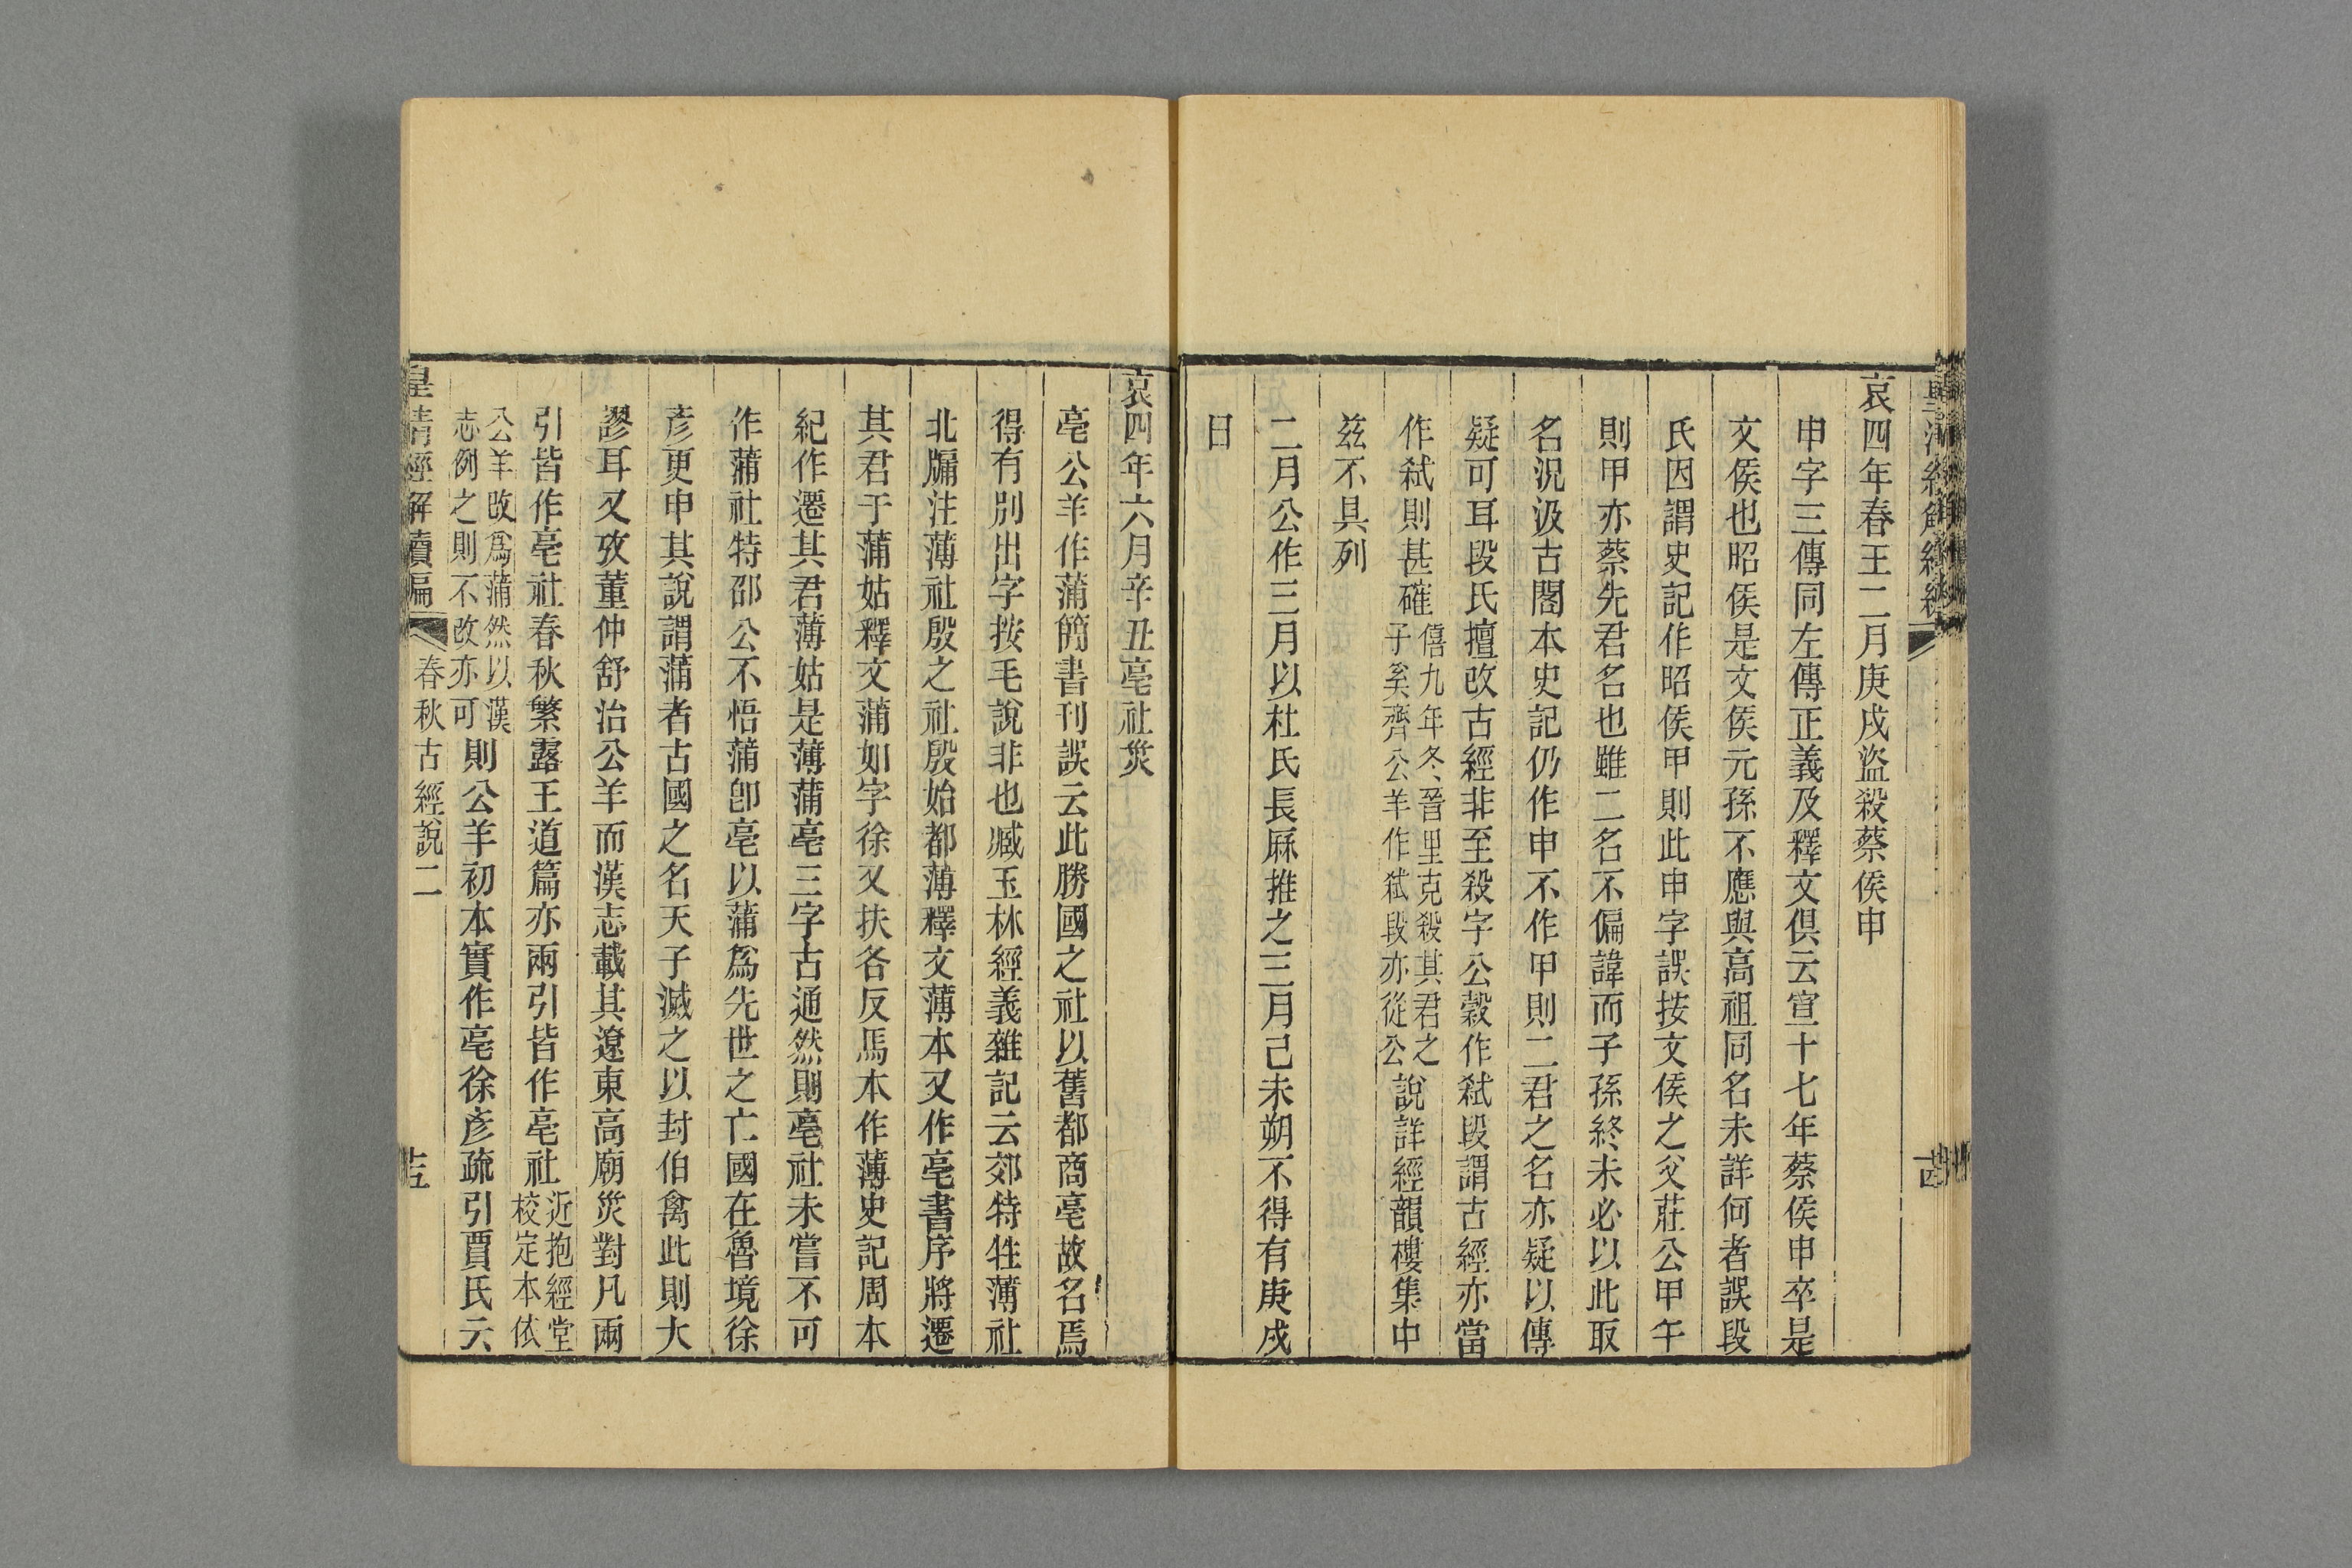 哀四年春王二月庚戌盜殺蔡侯申
申字三傳同左傳正義及釋文俱云宣十七年蔡侯申卒是
文侯也昭侯是文侯元孫不應與高祖同名未詳何者誤段
氏因謂史記作昭侯甲則此申字誤按文侯之父莊公甲午
則甲亦蔡先君名也雖二名不偏諱而子孫終未必以此取
名況汲古閣本史記仍作申不作甲則二君之名亦疑以傳
疑可耳段氏擅改古經非至殺字公穀作弒段謂古經亦當
作弒則甚確僖九年冬晉里克殺其君之子奚齊公羊作弒段亦從公說詳經韻樓集中
茲不具列
二月公作三月以杜氏長厤推之三月己未朔不得有庚戌
日
哀四年六月辛丑亳社災
亳公羊作蒲簡書刊誤云此勝國之社以舊都商亳故名焉
得有別出字按毛說非也臧玉林經義雜記云郊特牲薄社
北牖注薄社殷之社殷始都薄釋文薄本又作亳書序將遷
其君于蒲姑釋文蒲如字徐又扶各反馬本作薄史記周本
紀作遷其君薄姑是薄蒲亳三字古通然則亳社未嘗不可
作蒲社特邵公不悟蒲卽亳以蒲爲先世之亡國在魯境徐
彥更申其說謂蒲者古國之名天子滅之以封伯禽此則大
謬耳又攷董仲舒治公羊而漢志載其遼東高廟災對凡兩
引皆作亳社春秋繁露王道篇亦兩引皆作亳社近抱經堂校定本依
公羊改爲蒲然以漢志例之則不改亦可則公羊初本實作亳徐彥疏引賈氏云
皇清經解續編 春秋古經說二 十五